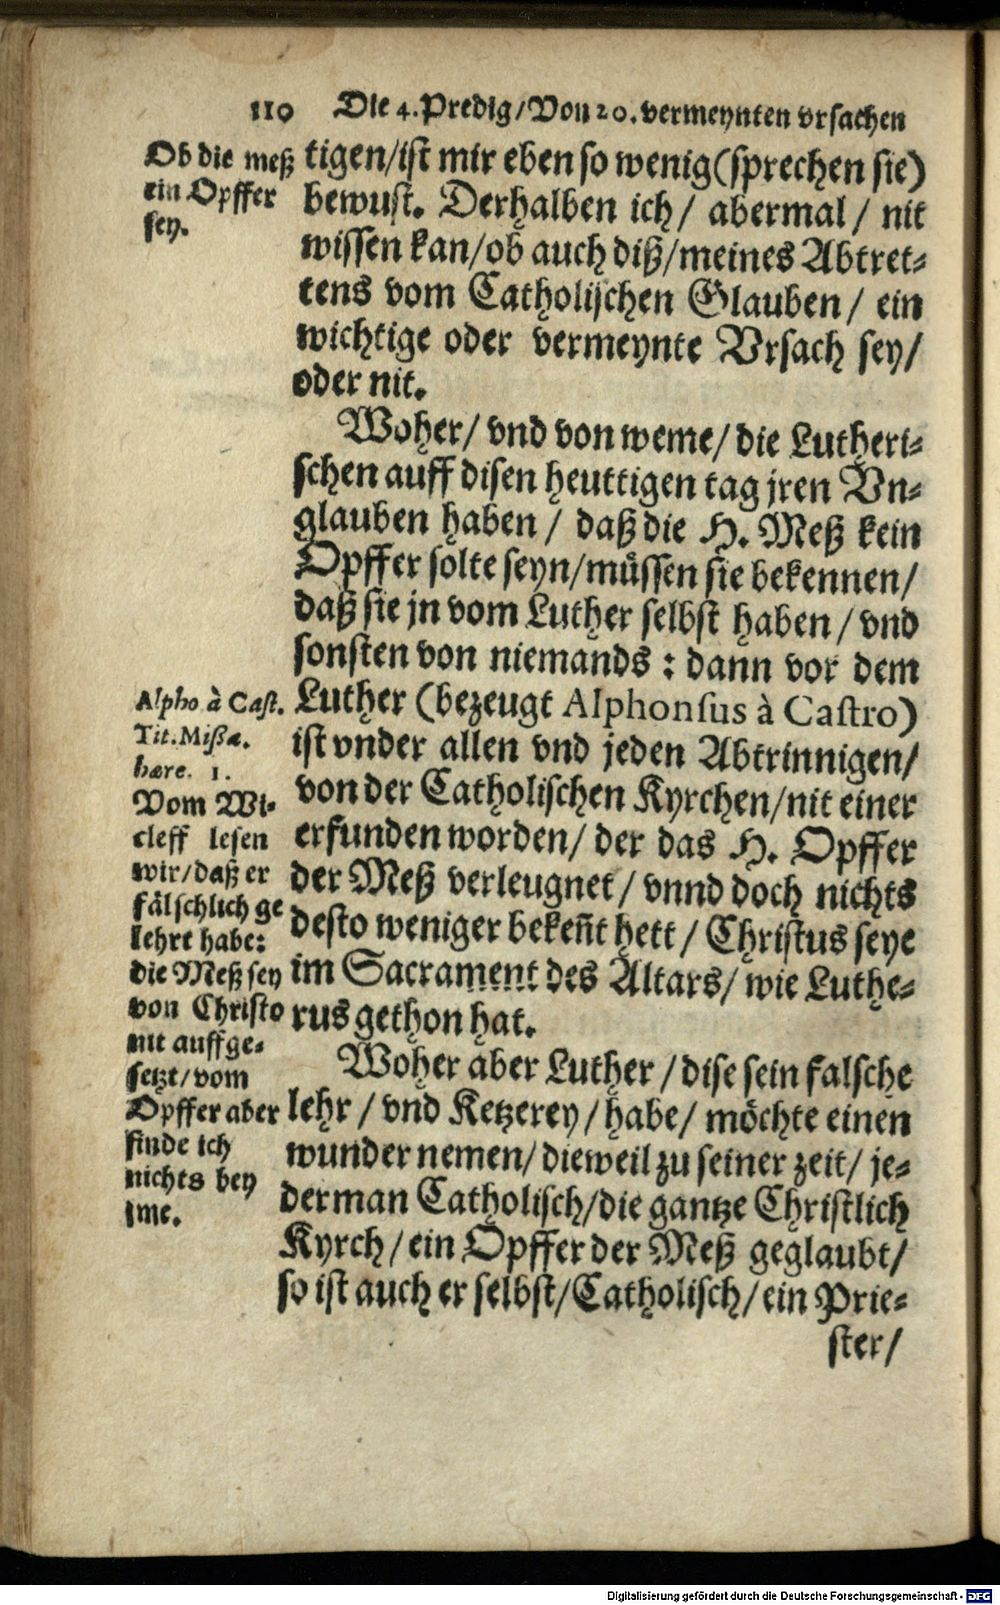 110 Die 4. Predig/Von 20. vermeynten vrsachen
Ob die meß
ein Opffer
sey.
tigen/ist mir eben so wenig (sprechen sie)
bewust. Derhalben ich/ abermal/ nit
wissen kan/ob auch diß/meines Abtret⸗
tens vom Catholischen Glauben/ ein
wichtige oder vermeynte Vrsach sey/
oder nit.
Woher/ vnd von weme/ die Lutheri⸗
schen auff disen heuttigen tag jren Vn⸗
glauben haben/ daß die H. Meß kein
Opffer solte seyn/müssen sie bekennen/
daß sie jn vom Luther selbst haben/ vnd
sonsten von niemands: dann vor dem
Luther (bezeugt Alphonsus à Castro)
ist vnder allen vnd jeden Abtrinnigen/
von der Catholischen Kyrchen/nit einer
erfunden worden/ der das H. Opffer
der Meß verleugnet/ vnnd doch nichts
desto weniger bekeñt hett/ Christus seye
im Sacrament des Altars/ wie Luthe⸗
rus gethon hat.
Alpho à Cast.
Tit. Mißæ.
hære. 1.
Vom Wi⸗
cleff lesen
wir/daß er
fälschlich ge
lehrt habe:
die Meß sey
von Christo
nit auffge⸗
setzt/vom
Opffer aber
finde ich
nichts bey
jme.
Woher aber Luther/dise sein falsche
lehr/ vnd Ketzerey/habe/ möchte einen
wunder nemen/dieweil zu seiner zeit/ je⸗
derman Catholisch/die gantze Christlich
Kyrch/ein Opffer der Meß geglaubt/
so ist auch er selbst/Catholisch/ein Prie⸗
ster/
Digitalisierung gefördert durch die Deutsche Forschungsgemeinschaft - DFG